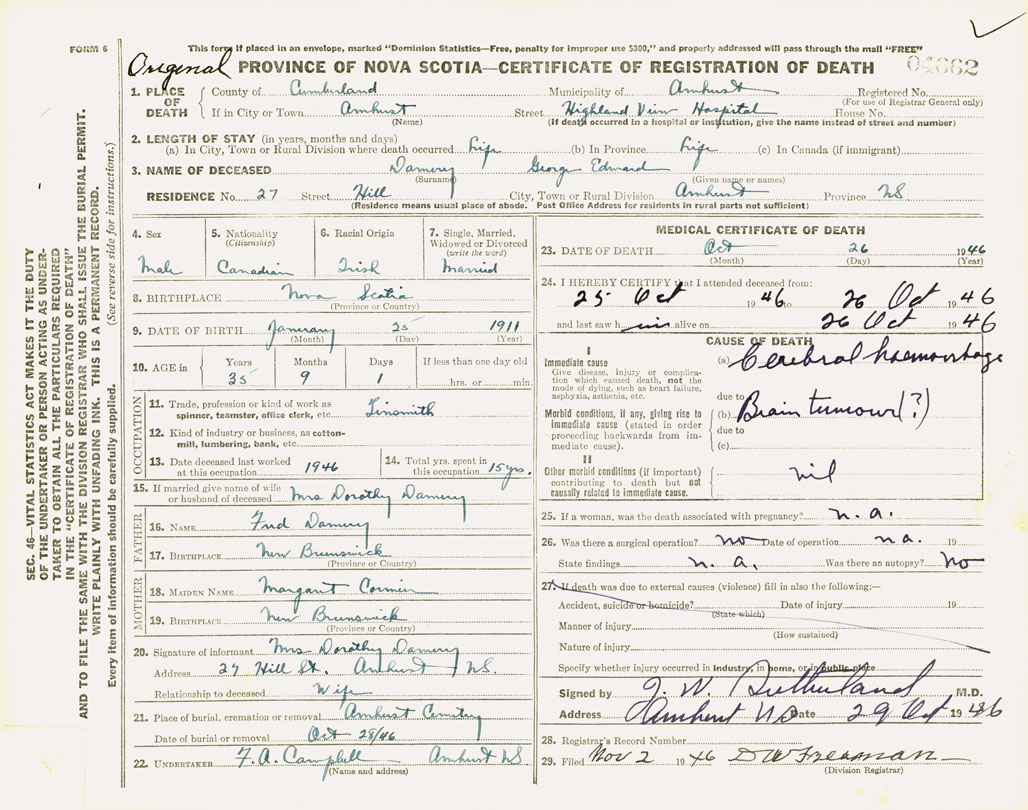 FORM 6
This form if placed in an envelope, marked "Dominion Statistics—Free, penalty for improper use $300," and properly addressed will pass through the mail "FREE"
Original PROVINCE OF NOVA SCOTIA—CERTIFICATE OF REGISTRATION OF DEATH 04662
1. PLACE OF DEATH
County of Cumberland Municipality of Amherst Registered No.
(For use of Registrar General only)
If in City or Town Amherst Street Highland View Hospital House No.
(Name) (If death occurred in a hospital or institution, give the name instead of street and number)
2. LENGTH OF STAY (in years, months and days)
(a) In City, Town or Rural Division where death occurred Life (b) In Province Life (c) In Canada (if immigrant)
3. NAME OF DECEASED Damery George Edward
(Surname) (Given name or names)
RESIDENCE No. 27 Street Hill City, Town or Rural Division Amherst Province NS
(Residence means usual place of abode. Post Office Address for residents in rural parts not sufficient)
4. Sex
Male
5. Nationality
(Citizenship)
Canadian
6. Racial Origin
Irish
7. Single, Married, Widowed or Divorced
(write the word)
Married
8. BIRTHPLACE Nova Scotia
(Province or Country)
9. DATE OF BIRTH January 25 1911
(Month) (Day) (Year)
10. AGE in
Years Months Days If less than one day old
35 9 1 hrs. or min.
OCCUPATION
11. Trade, profession or kind of work as
spinner, teamster, office clerk, etc. Tinsmith
12. Kind of industry or business, as cotton-
mill, lumbering, bank, etc.
13. Date deceased last worked
at this occupation 1946
14. Total yrs. spent in
this occupation 15 yrs.
15. If married give name of wife
or husband of deceased Mrs Dorothy Damery
FATHER
16. NAME Fred Damery
17. BIRTHPLACE New Brunswick
(Province or Country)
MOTHER
18. MAIDEN NAME Margaret Cormier
19. BIRTHPLACE New Brunswick
(Province or Country)
20. Signature of informant Mrs Dorothy Damery
Address 27 Hill St. Amherst NS.
Relationship to deceased Wife
21. Place of burial, cremation or removal Amherst Cemetery
Date of burial or removal Oct 28/46
22. UNDERTAKER F. A. Campbell Amherst NS
(Name and address)
MEDICAL CERTIFICATE OF DEATH
23. DATE OF DEATH Oct 26 1946
(Month) (Day) (Year)
24. I HEREBY CERTIFY that I attended deceased from:
25 Oct 1946 to 26 Oct 1946
and last saw him alive on 26 Oct 1946
CAUSE OF DEATH
I
Immediate cause
Give disease, injury or complica-
tion which caused death, not the
mode of dying, such as heart failure,
asphyxia, asthenia, etc.
(a) Cerebral haemorrhage
due to
Morbid conditions, if any, giving rise to
immediate cause (stated in order
proceeding backwards from im-
mediate cause).
(b) Brain tumour (?)
due to
(c)
II
Other morbid conditions (if important)
contributing to death but not
causally related to immediate cause.
nil
25. If a woman, was the death associated with pregnancy? n.a.
26. Was there a surgical operation? no Date of operation na. 19
State findings n.a. Was there an autopsy? No
27. If death was due to external causes (violence) fill in also the following:—
Accident, suicide or homicide? Date of injury 19
(State which)
Manner of injury
(How sustained)
Nature of injury
Specify whether injury occurred in industry, in home, or in public place
Signed by J. W. Sutherland M.D.
Address Amherst NS Date 29 Oct 1946
28. Registrar's Record Number
29. Filed Nov 2 1946 D W Freeman
(Division Registrar)
SEC. 46—VITAL STATISTICS ACT MAKES IT THE DUTY
OF THE UNDERTAKER OR PERSON ACTING AS UNDER-
TAKER TO OBTAIN ALL THE PARTICULARS REQUIRED
IN THE "CERTIFICATE OF REGISTRATION OF DEATH"
AND TO FILE THE SAME WITH THE DIVISION REGISTRAR WHO SHALL ISSUE THE BURIAL PERMIT.
WRITE PLAINLY WITH UNFADING INK. THIS IS A PERMANENT RECORD.
Every item of information should be carefully supplied. (See reverse side for instructions.)